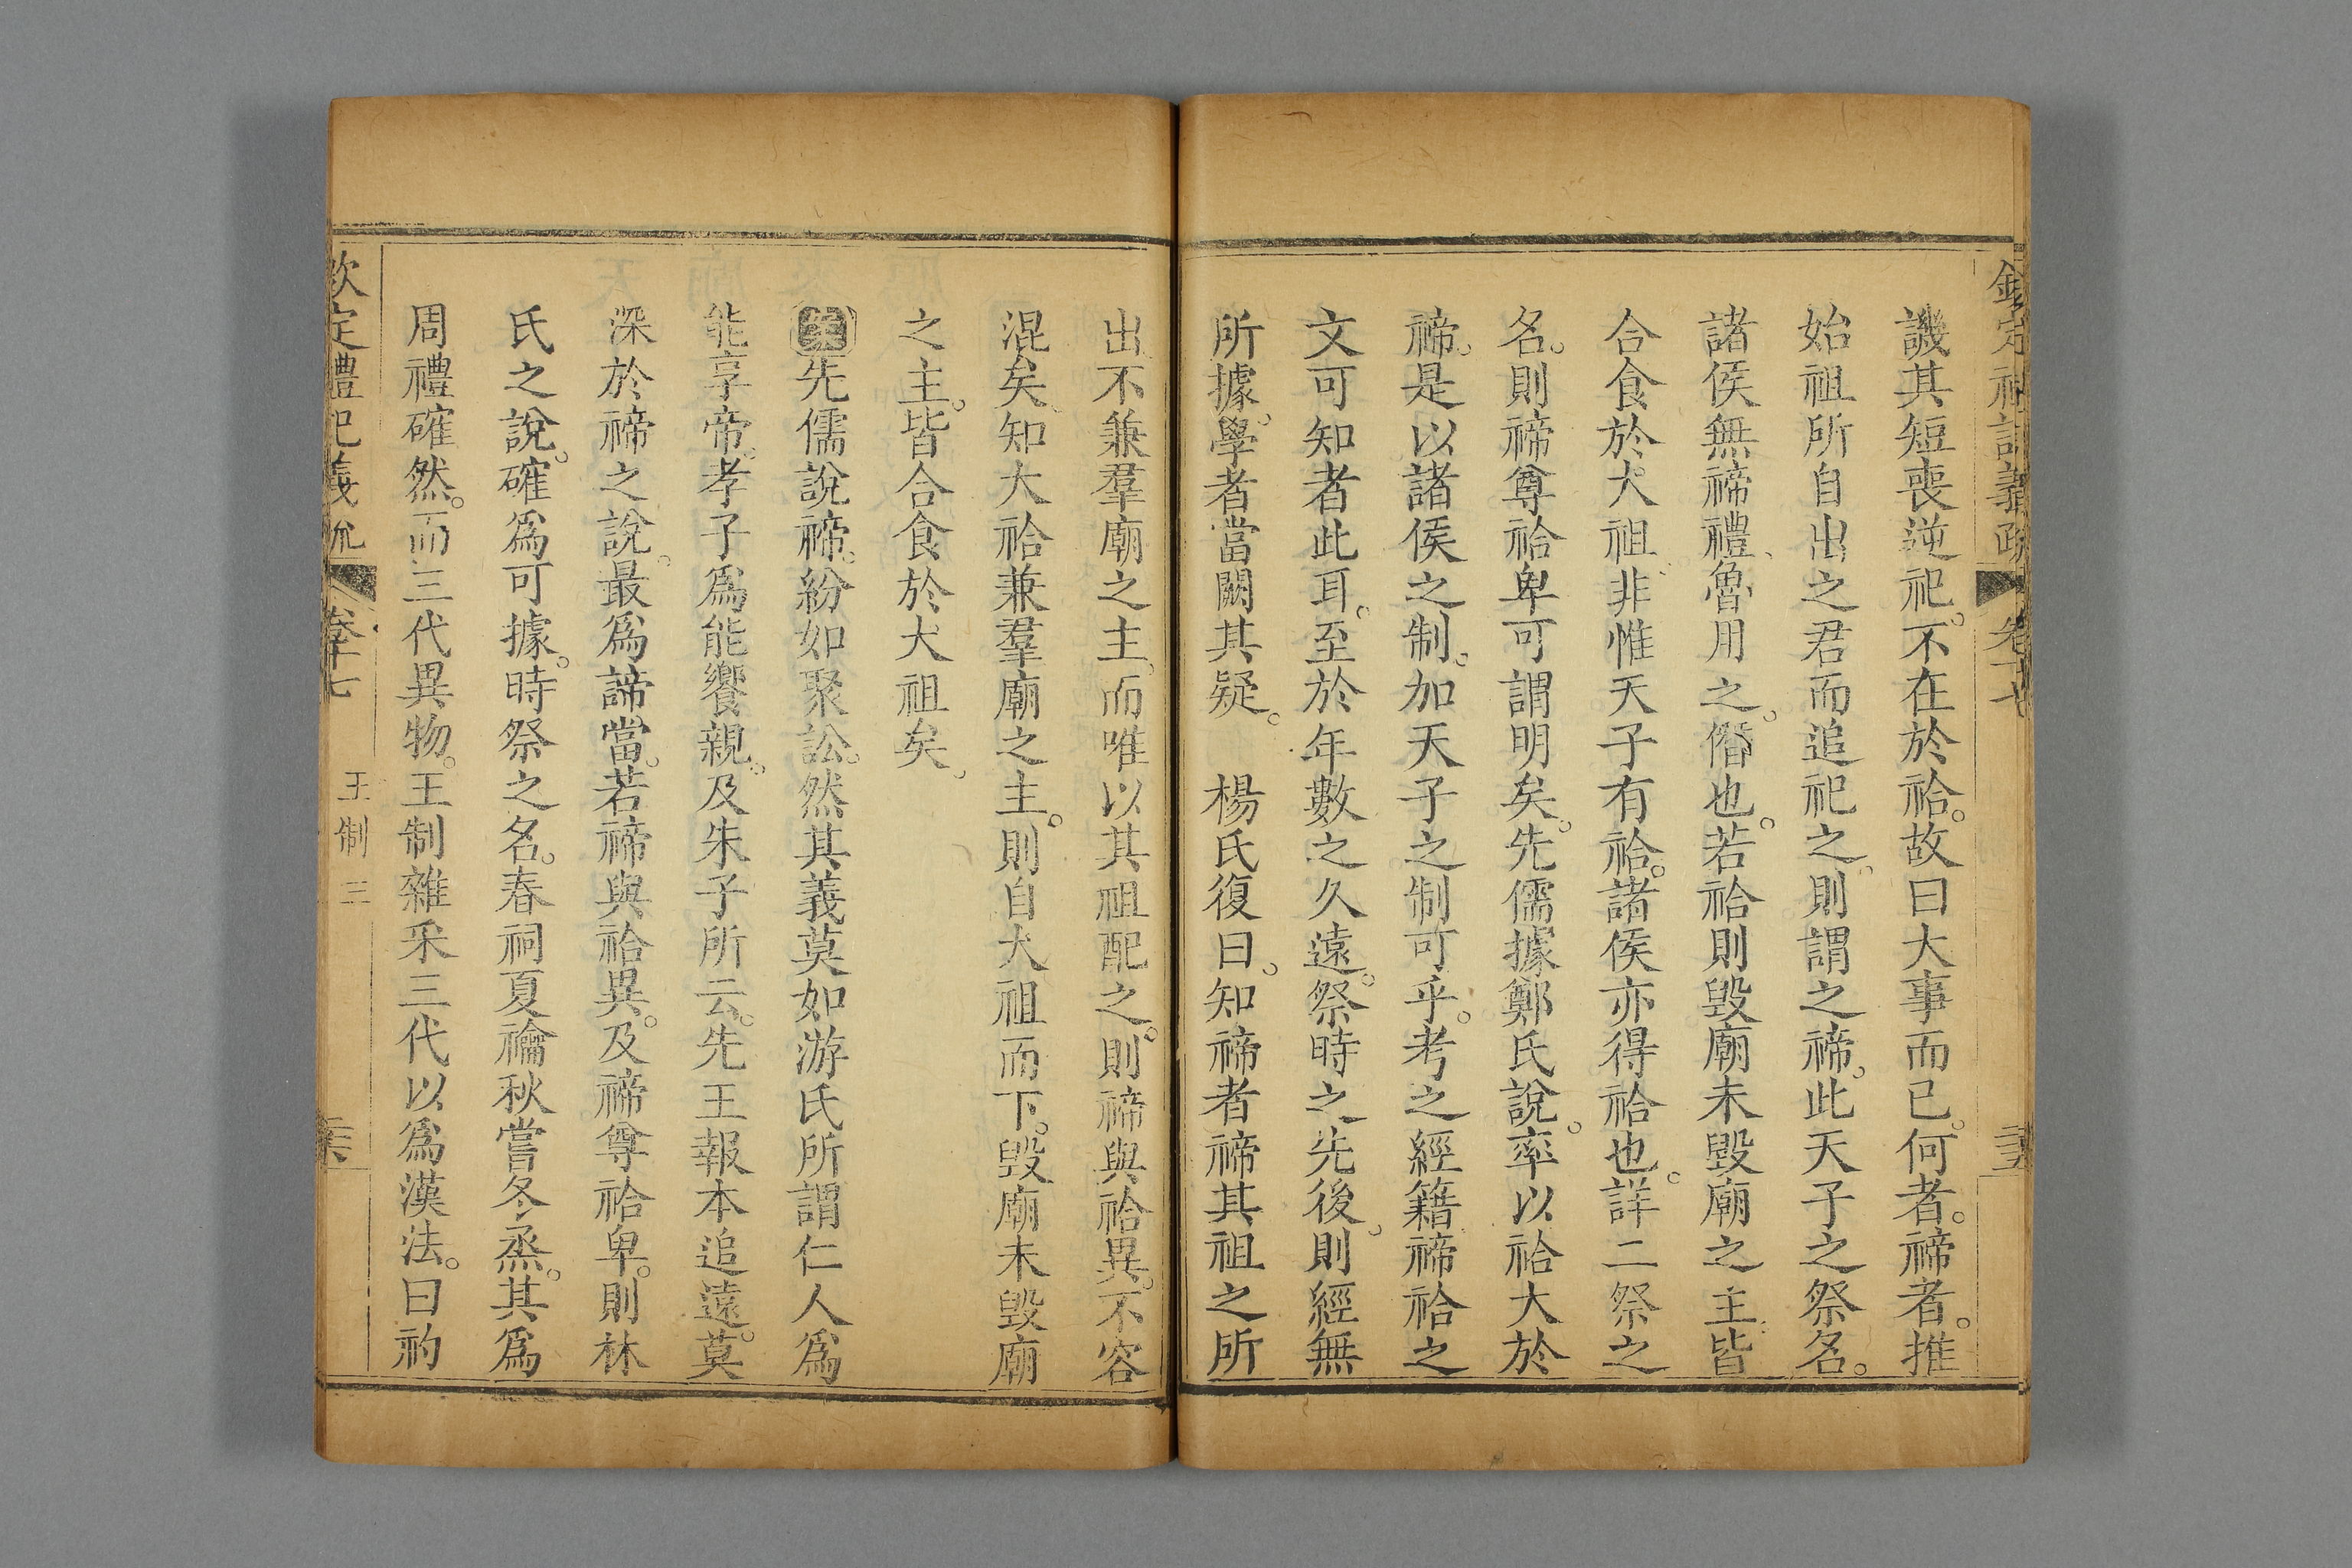 欽定禮記義疏 卷十七
譏其短喪逆祀。不在於祫。故曰大事而已。何者。禘者。推
始祖所自出之君而追祀之。則謂之禘。此天子之祭名。
諸侯無禘禮、魯用之。僭也。若祫則毀廟未毀廟之主皆
合食於大祖、非惟天子有祫。諸侯亦得祫也。詳二祭之
名。則禘尊祫卑可謂明矣。先儒據鄭氏說。率以祫大於
禘。是以諸侯之制。加天子之制可乎。考之經籍禘祫之
文可知者此耳。至於年數之久遠。祭時之先後。則經無
所據。學者當闕其疑。 楊氏復曰。知禘者禘其祖之所
出、不兼羣廟之主。而唯以其祖配之。則禘與祫異。不容
混矣、知大祫兼羣廟之主。則自大祖而下。毀廟未毀廟
之主。皆合食於大祖矣。
案先儒說禘。紛如聚訟。然其義莫如游氏所謂仁人爲
能享帝。孝子爲能饗親。及朱子所云。先王報本追遠。莫
深於禘之說。最爲諦當。若禘與祫異。及禘尊祫卑。則林
氏之說。確爲可據。時祭之名。春祠夏禴秋嘗冬烝。其爲
周禮確然。而三代異物。王制雜采三代以爲漢法。曰礿
欽定禮記義疏 卷十七 王制三